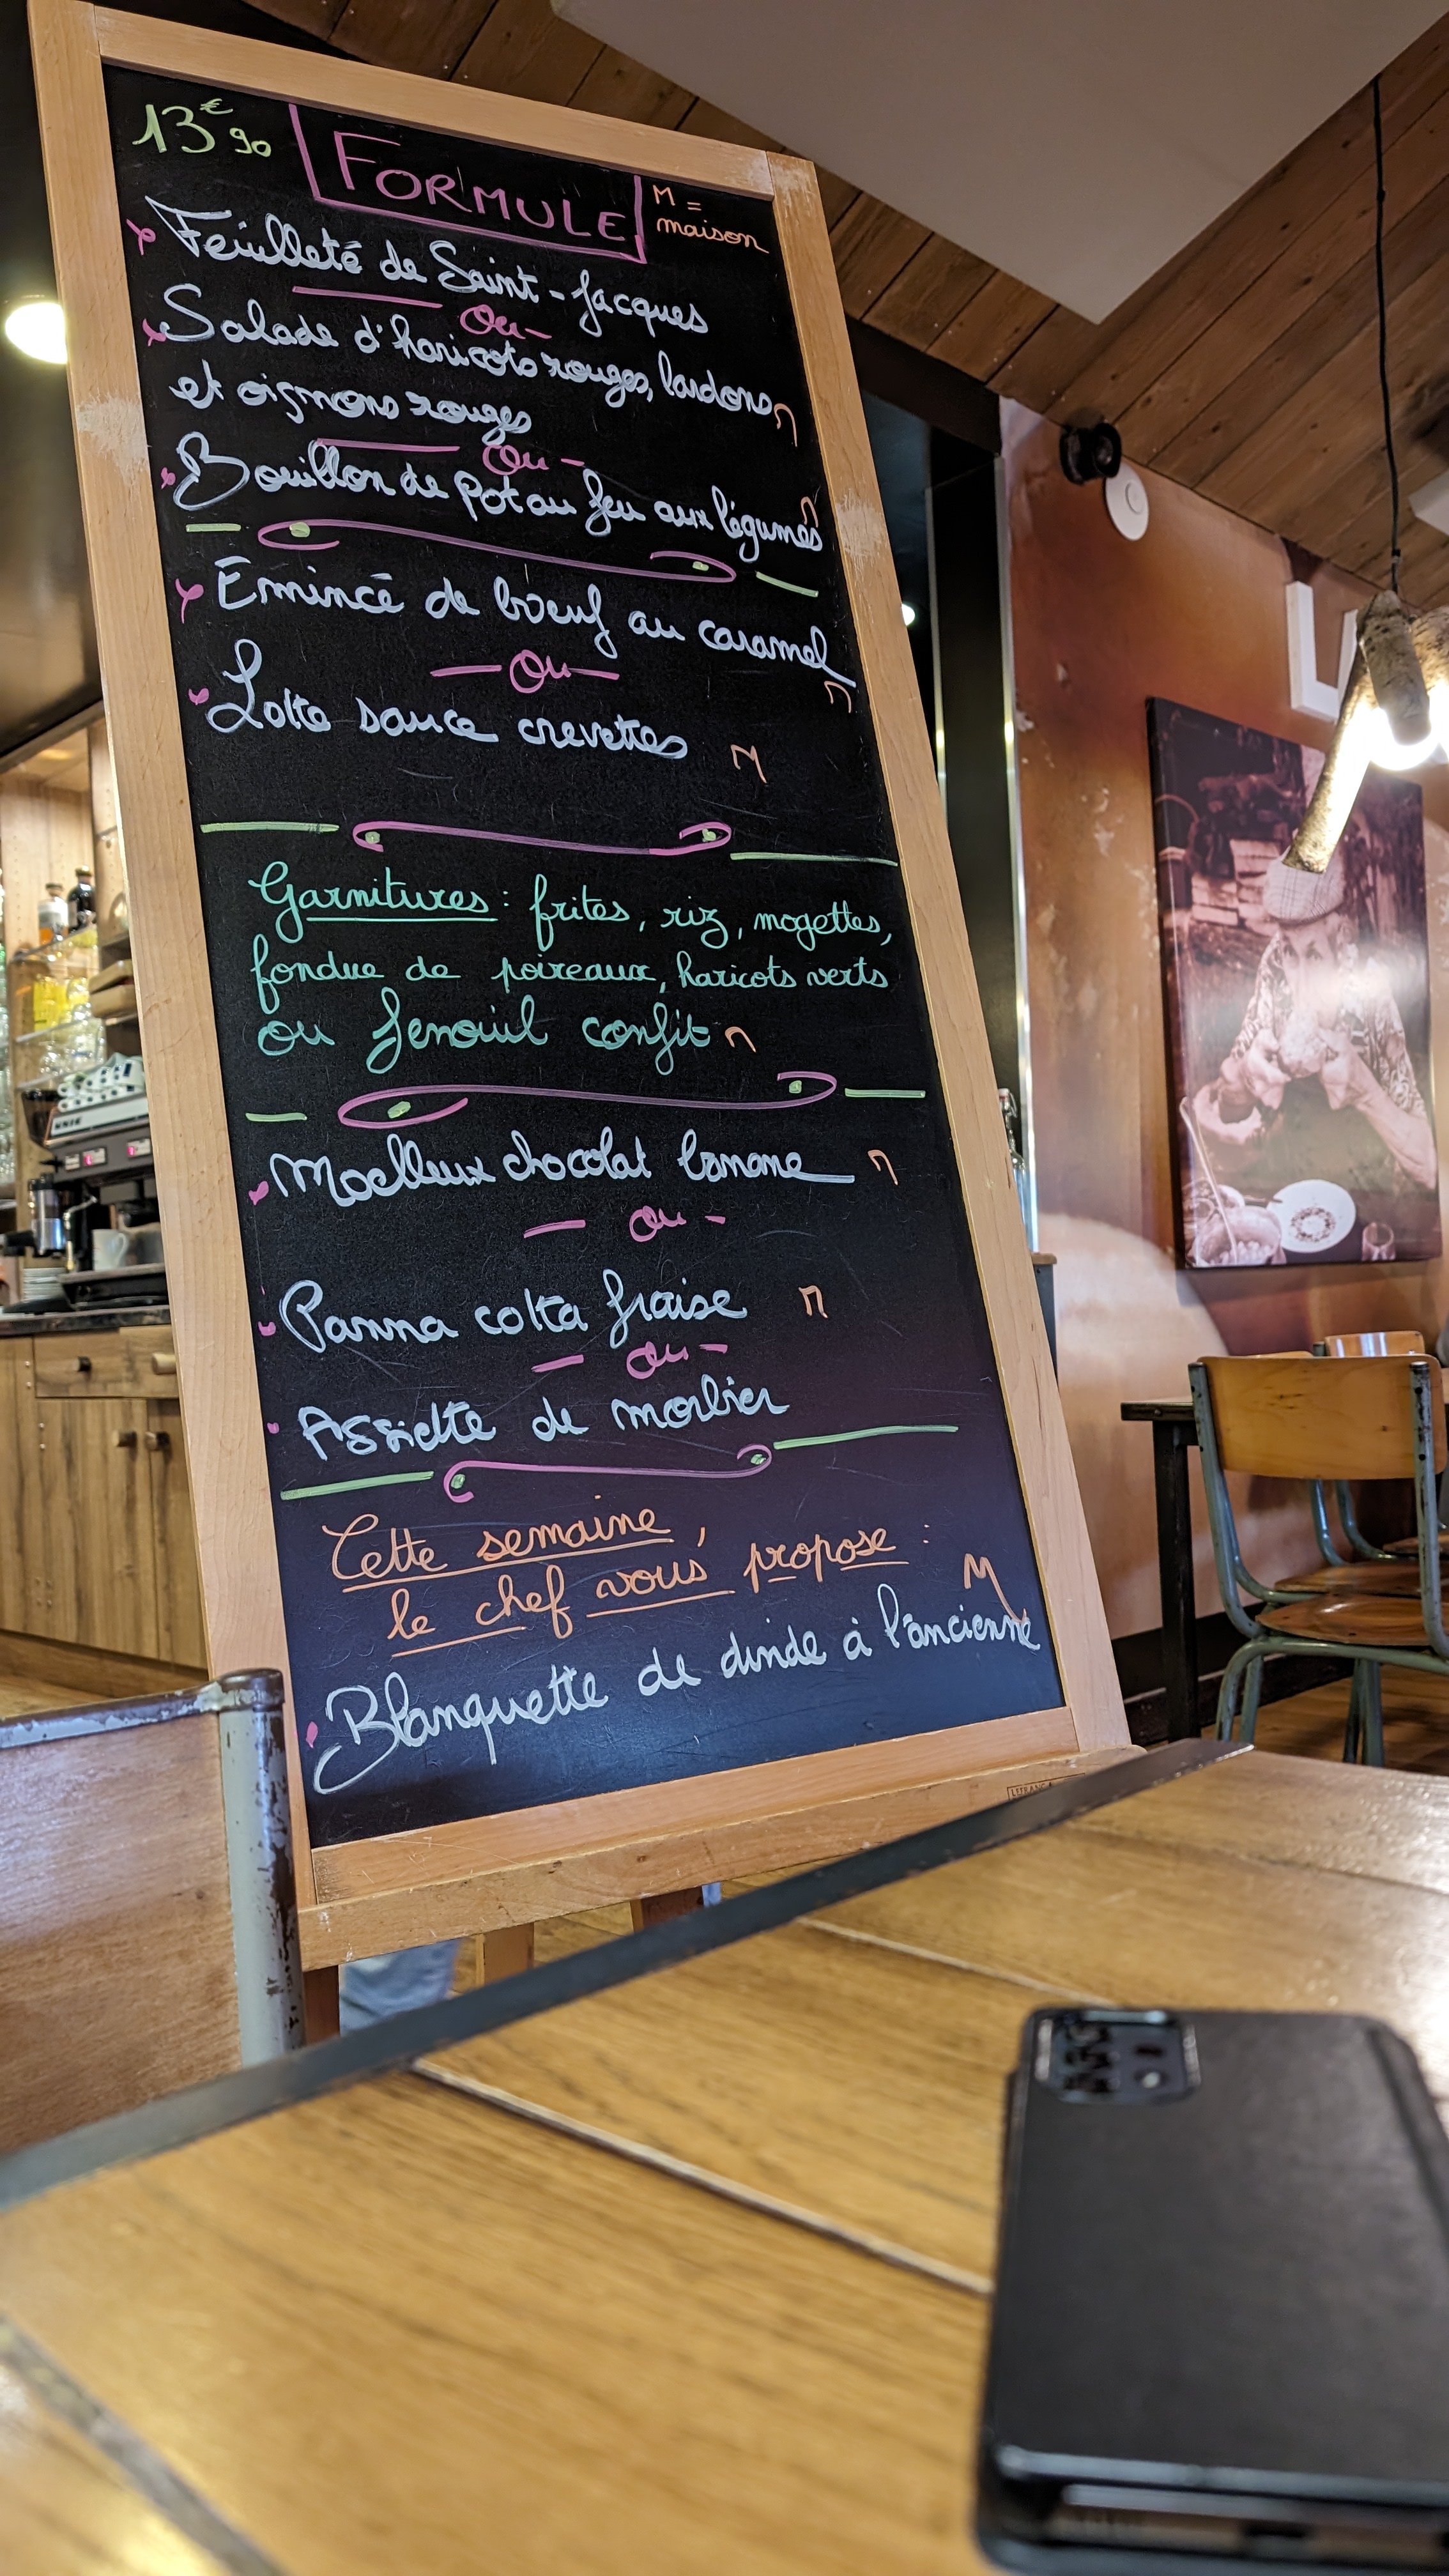 13€90
FORMULE
M =
maison
Feuilleté de Saint-Jacques
Ou
Salade d'haricots rouges, lardons
et oignons rouges M
Ou
Bouillon de pot au feu aux légumes M
Émincé de bœuf au caramel
Ou M
Lotte sauce crevettes M
Garnitures : frites, riz, mogettes,
fondue de poireaux, haricots verts
ou fenouil confit M
Moelleux chocolat banane M
ou
Panna cotta fraise M
ou
Assiette de morbier
Cette semaine,
le chef vous propose :
M
Blanquette de dinde à l'ancienne